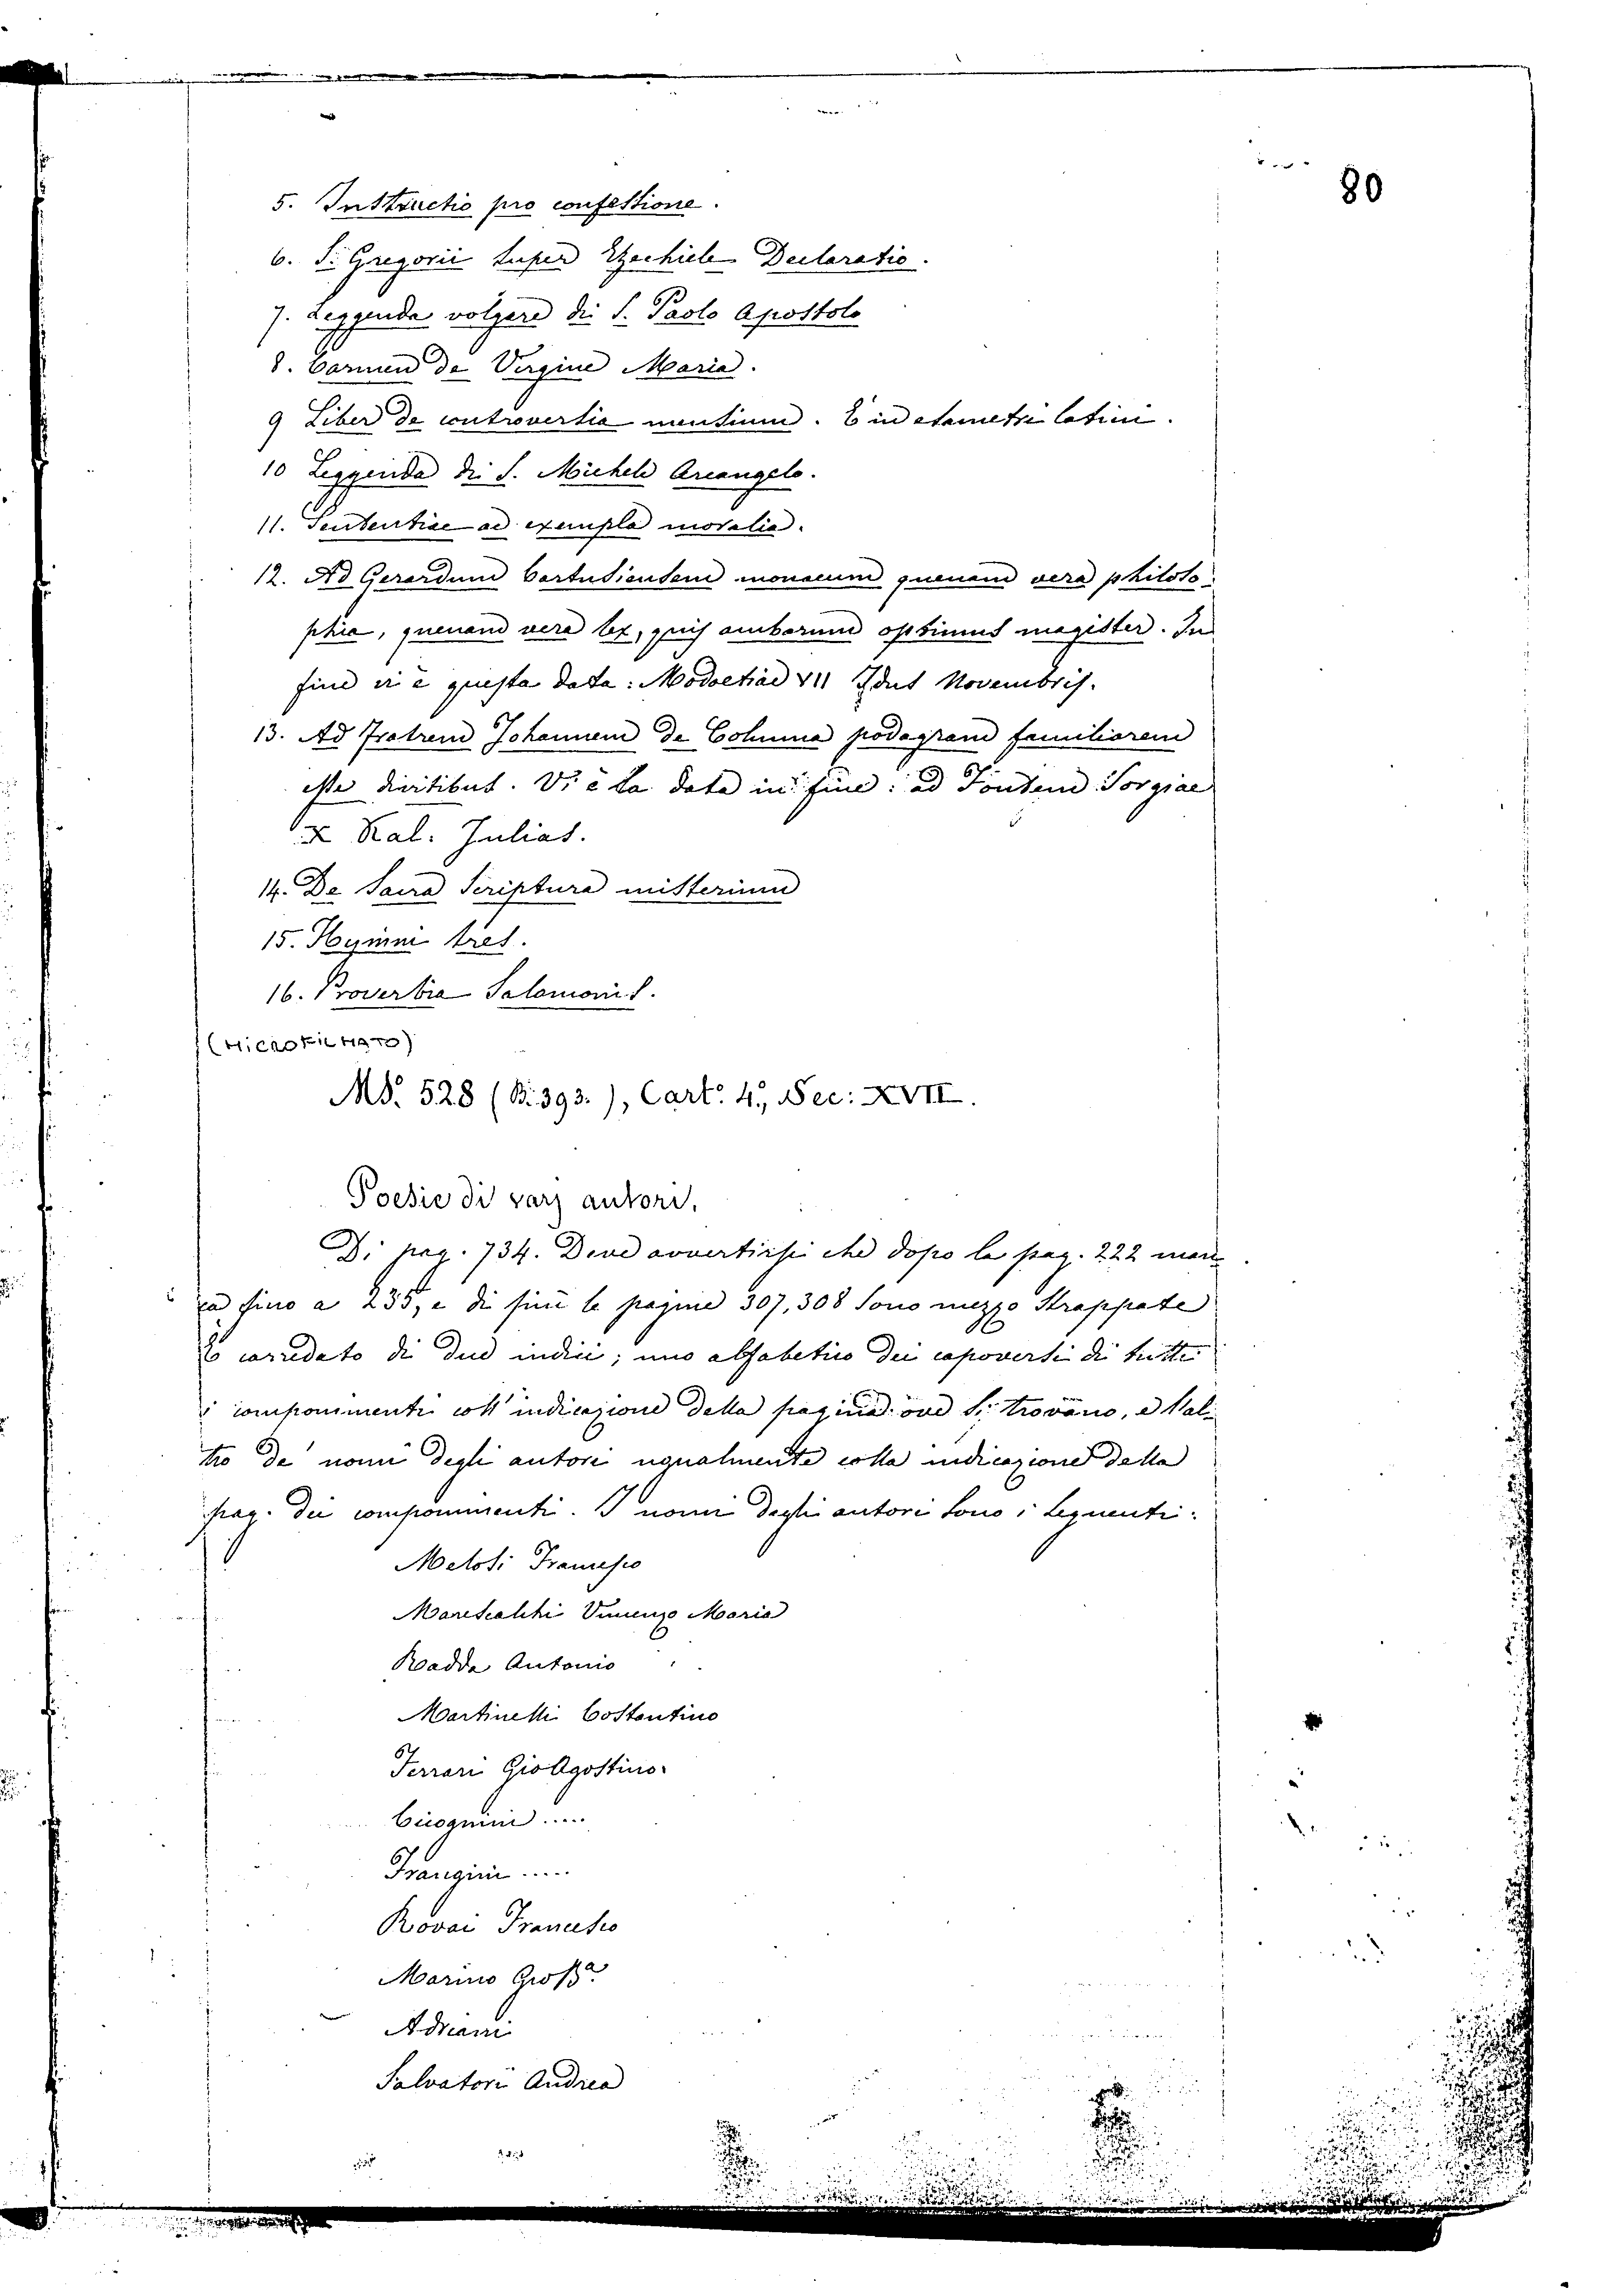 80
5. Instructio pro confessione.
6. S. Gregorii super Ezechiele Declaratio.
7. Leggenda volgare di S. Paolo Apostolo
8. Carmen de Vergine Maria.
9 Liber de controversia mensium. È in esametri latini.
10 Leggenda di S. Michele Arcangelo.
11. Sententiae ad exempla moralia.
12. Ad Gerardum Cartusientem monacum quenam vera philoso-
phia, quenam vera lex, quis ambarum optimus magister. In
fine vi è questa data: Modoetiae VII Idus Novembris.
13. Ad Fratrem Johannem de Columna podagram familiarem
esse divitibus. Vi è la data in fine: ad Fontem Sorgiae
X Kal. Julias.
14. De Sacra Scriptura misterium
15. Hymni tres.
16. Proverbia Salomonis.
(MICROFILMATO)
MS. 528 (B. 393.), Cart: 4º, Sec: XVII.
Poesie di varj autori.
Di pag. 734. Deve avvertirsi che dopo la pag. 222 man
ca fino a 235, e di fine le pagine 307, 308 sono mezzo strappate
È corredato di due indici; uno alfabetico dei capoversi di tutti
i componimenti coll' indicazione della pagina ove si trovano, e l'al-
tro de' nomi degli autori ugualmente colla indicazione della
pag. dei componimenti. I nomi degli autori sono i seguenti:
Melosi Francesco
Marescalchi Vincenzo Maria
Radda Antonio
Martinelli Costantino
Ferrari Gio Agostino
Cicognini .....
Frangini .....
Rovai Francesco
Marino
Adriani
Salvatori Andrea